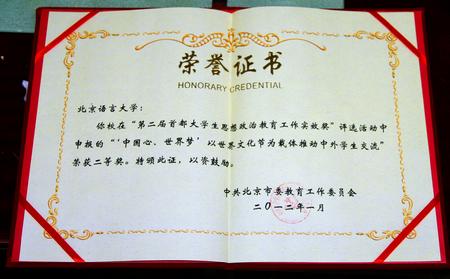 荣誉证书
HONORARY CREDENTIAL
北京语言大学：
你校在“第二届首都大学生思想政治教育工作实效奖”评选活动中
申报的“‘中国心、世界梦’以世界文化节为载体推动中外学生交流”
荣获二等奖。特颁此证，以资鼓励。
中共北京市委教育工作委员会
二〇一二年一月